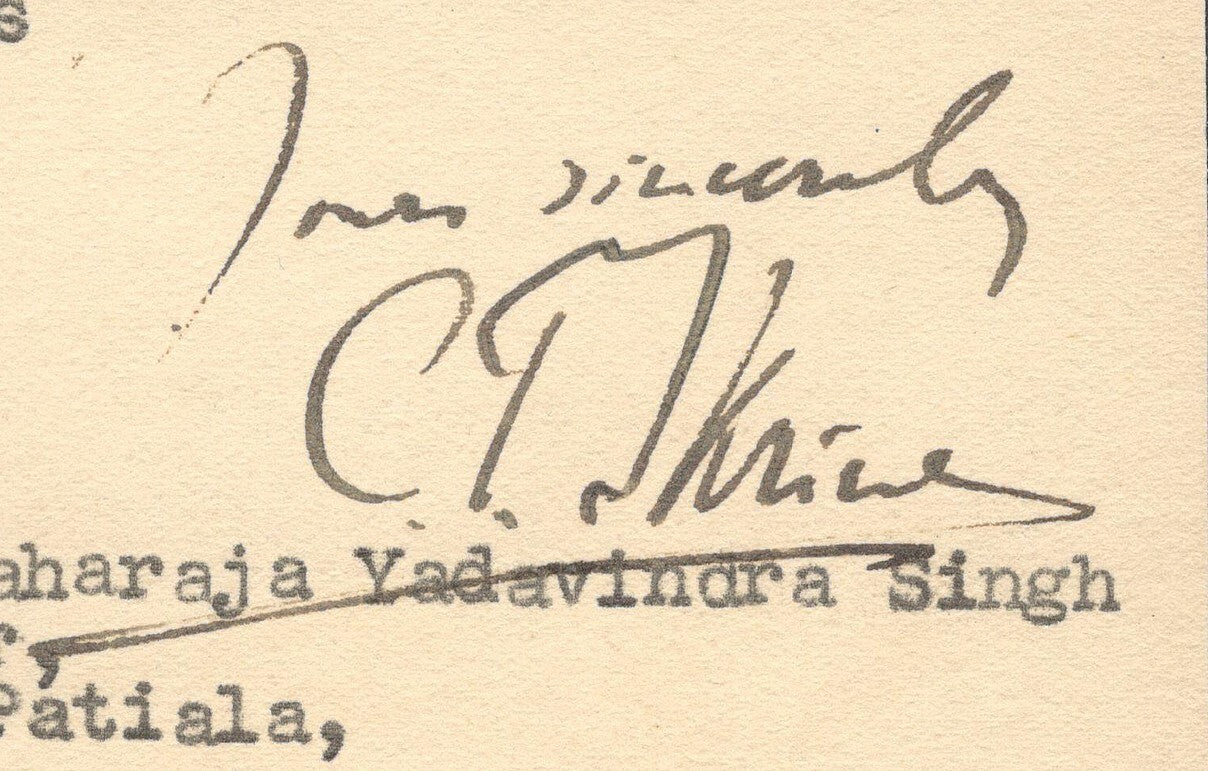 s
Yours sincerely
C.P. Skrine
aharaja Yadavindra Singh
,
Patiala,